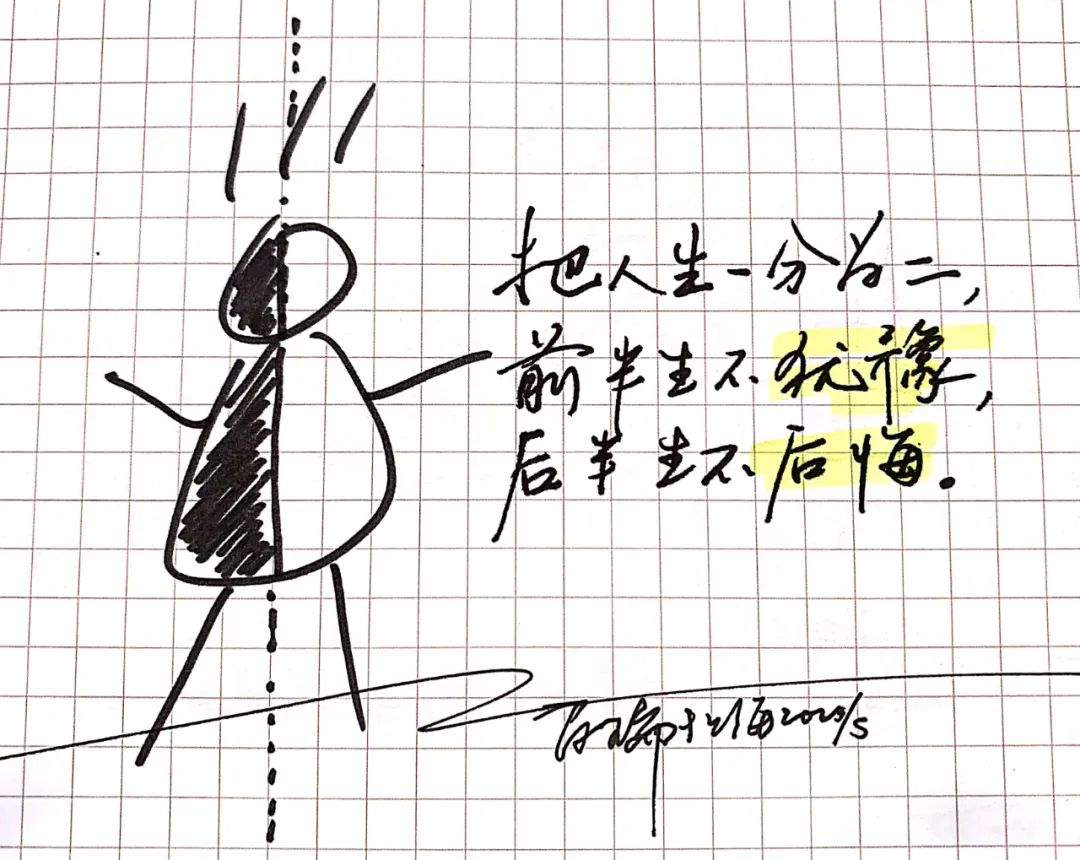 把人生一分为二，
前半生不犹豫，
后半生不后悔。